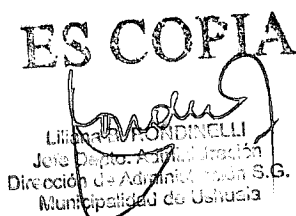 ES COPIA
Liliana RONDINELLI
Jefe Depto. Administración
Dirección de Administración S.G.
Municipalidad de Ushuaia